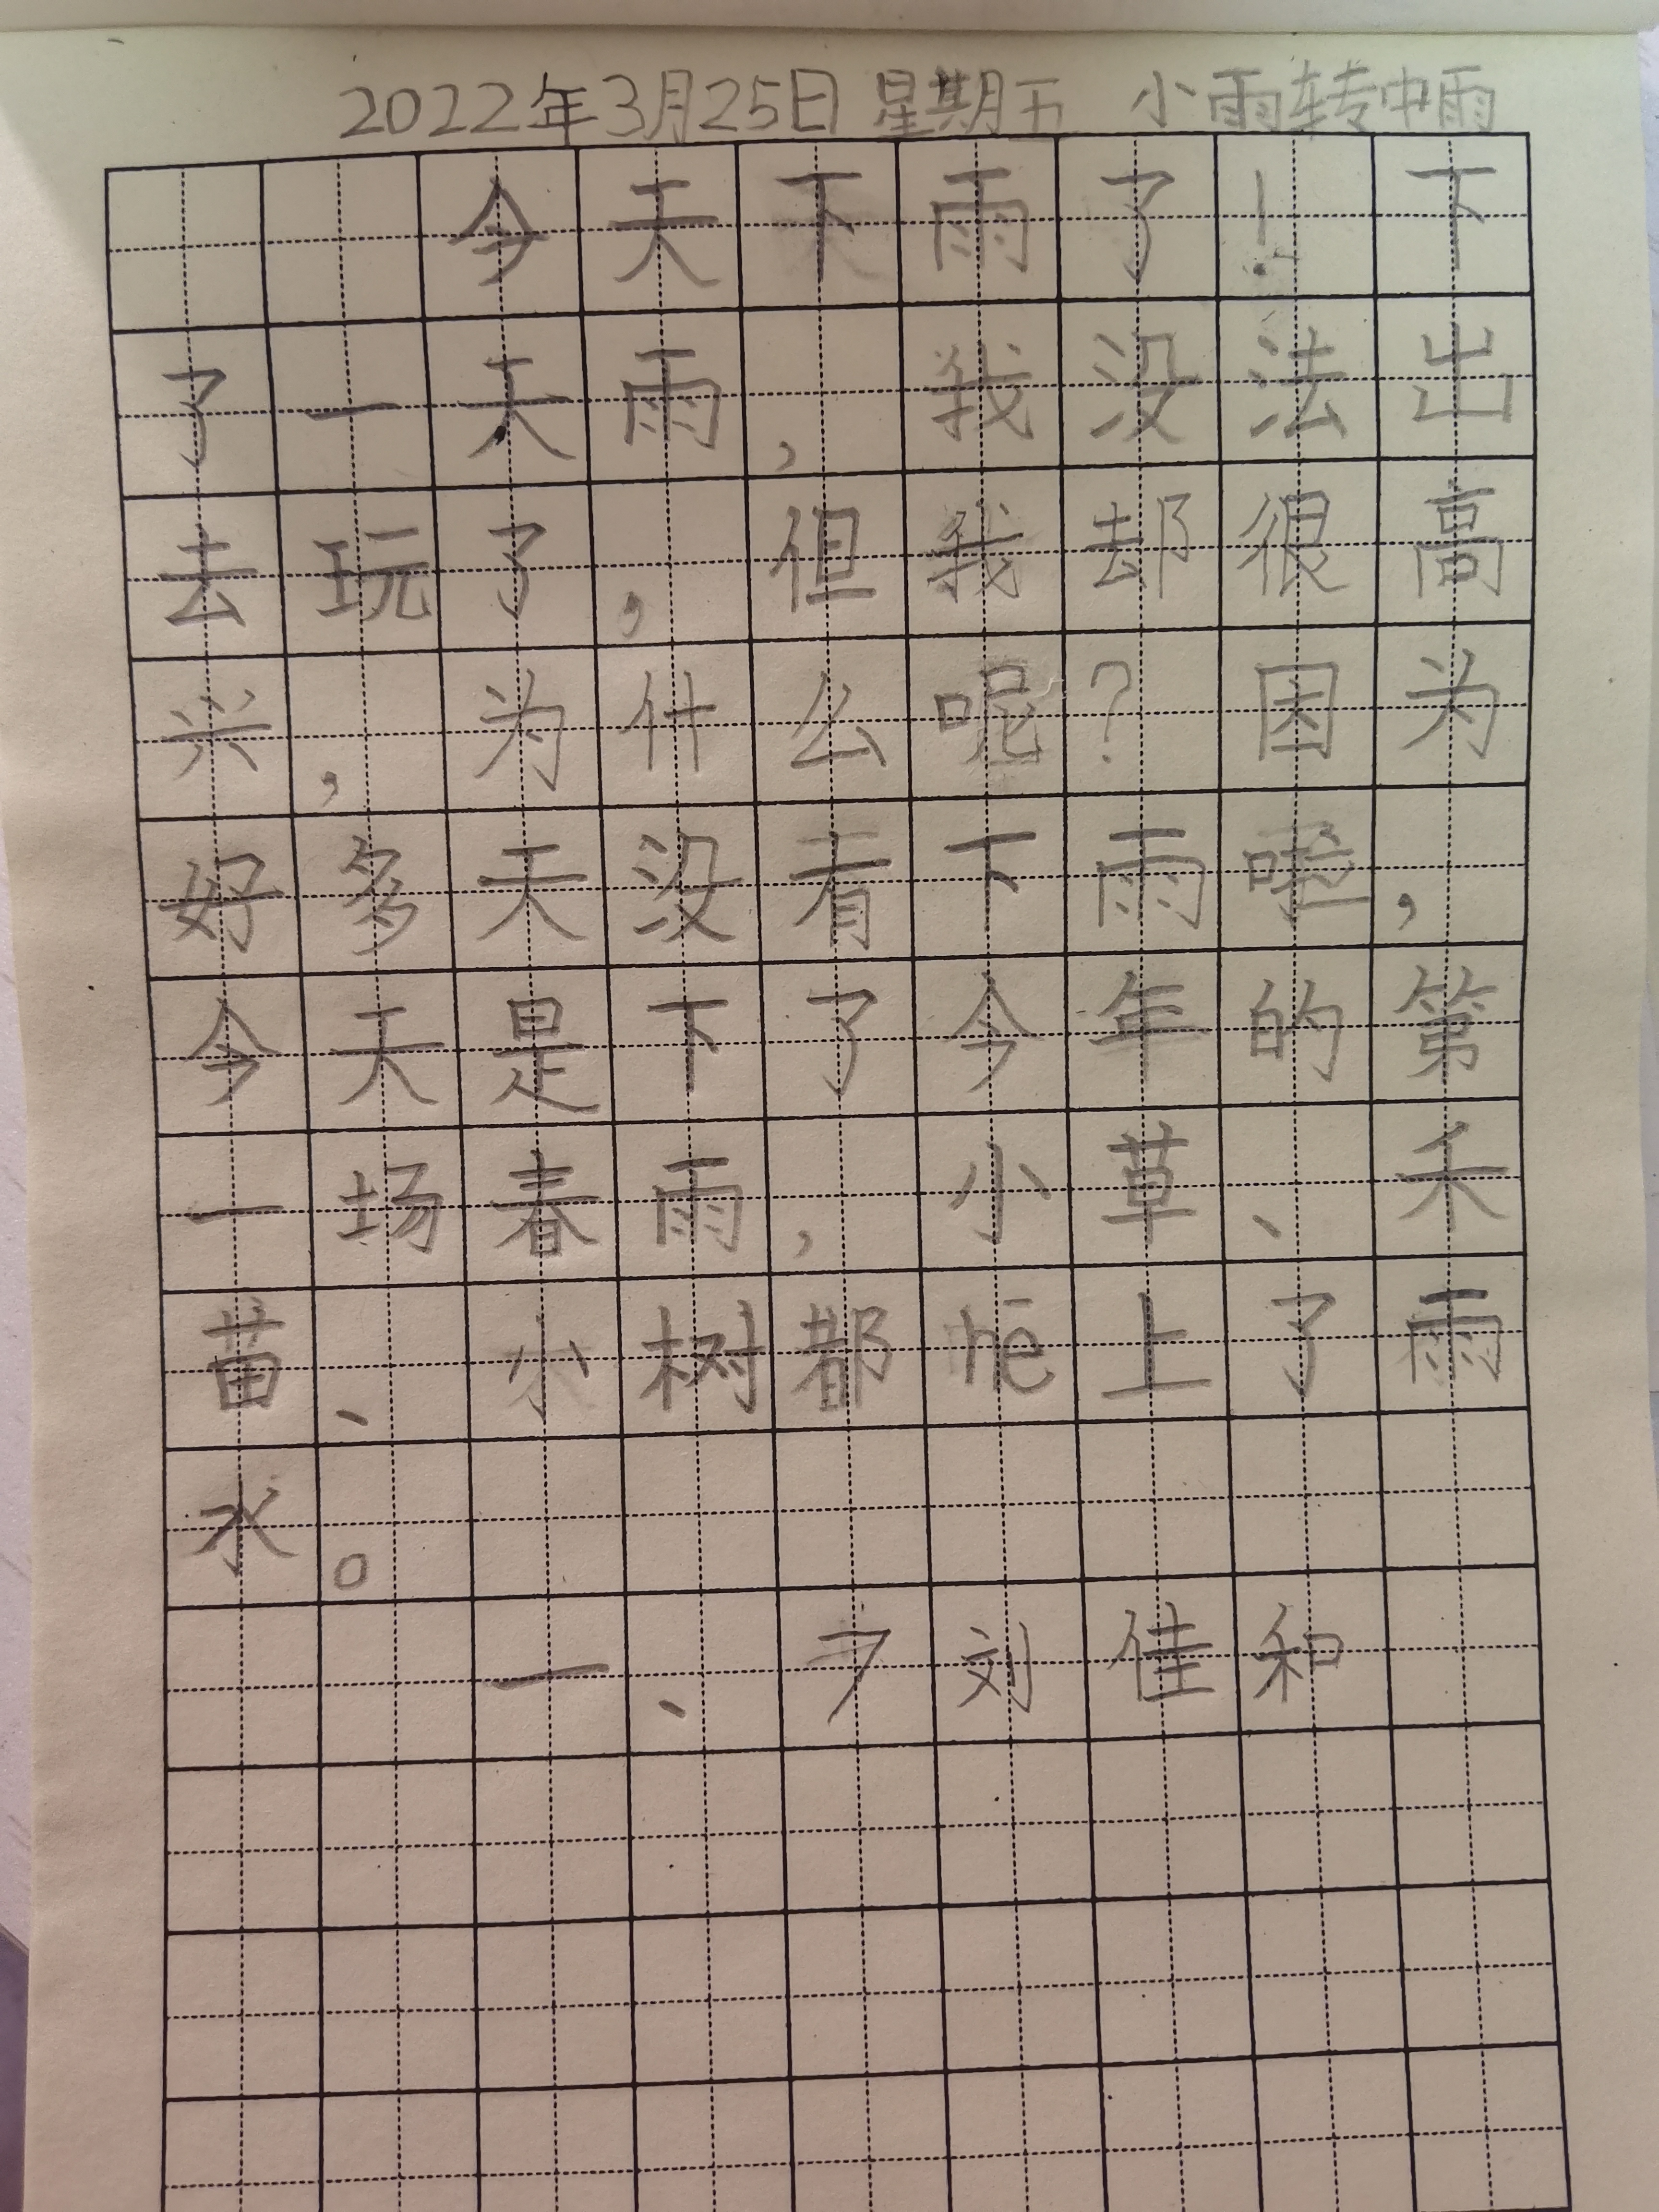 2022年3月25日 星期五 小雨转中雨
今天下雨了!下
了一天雨,我没法出
去玩了,但我却很高
兴,为什么呢?因为
好多天没有下雨,
今天是下了今年的第
一场春雨,小草、禾
苗、小树都上了雨
水。
一、7刘佳和